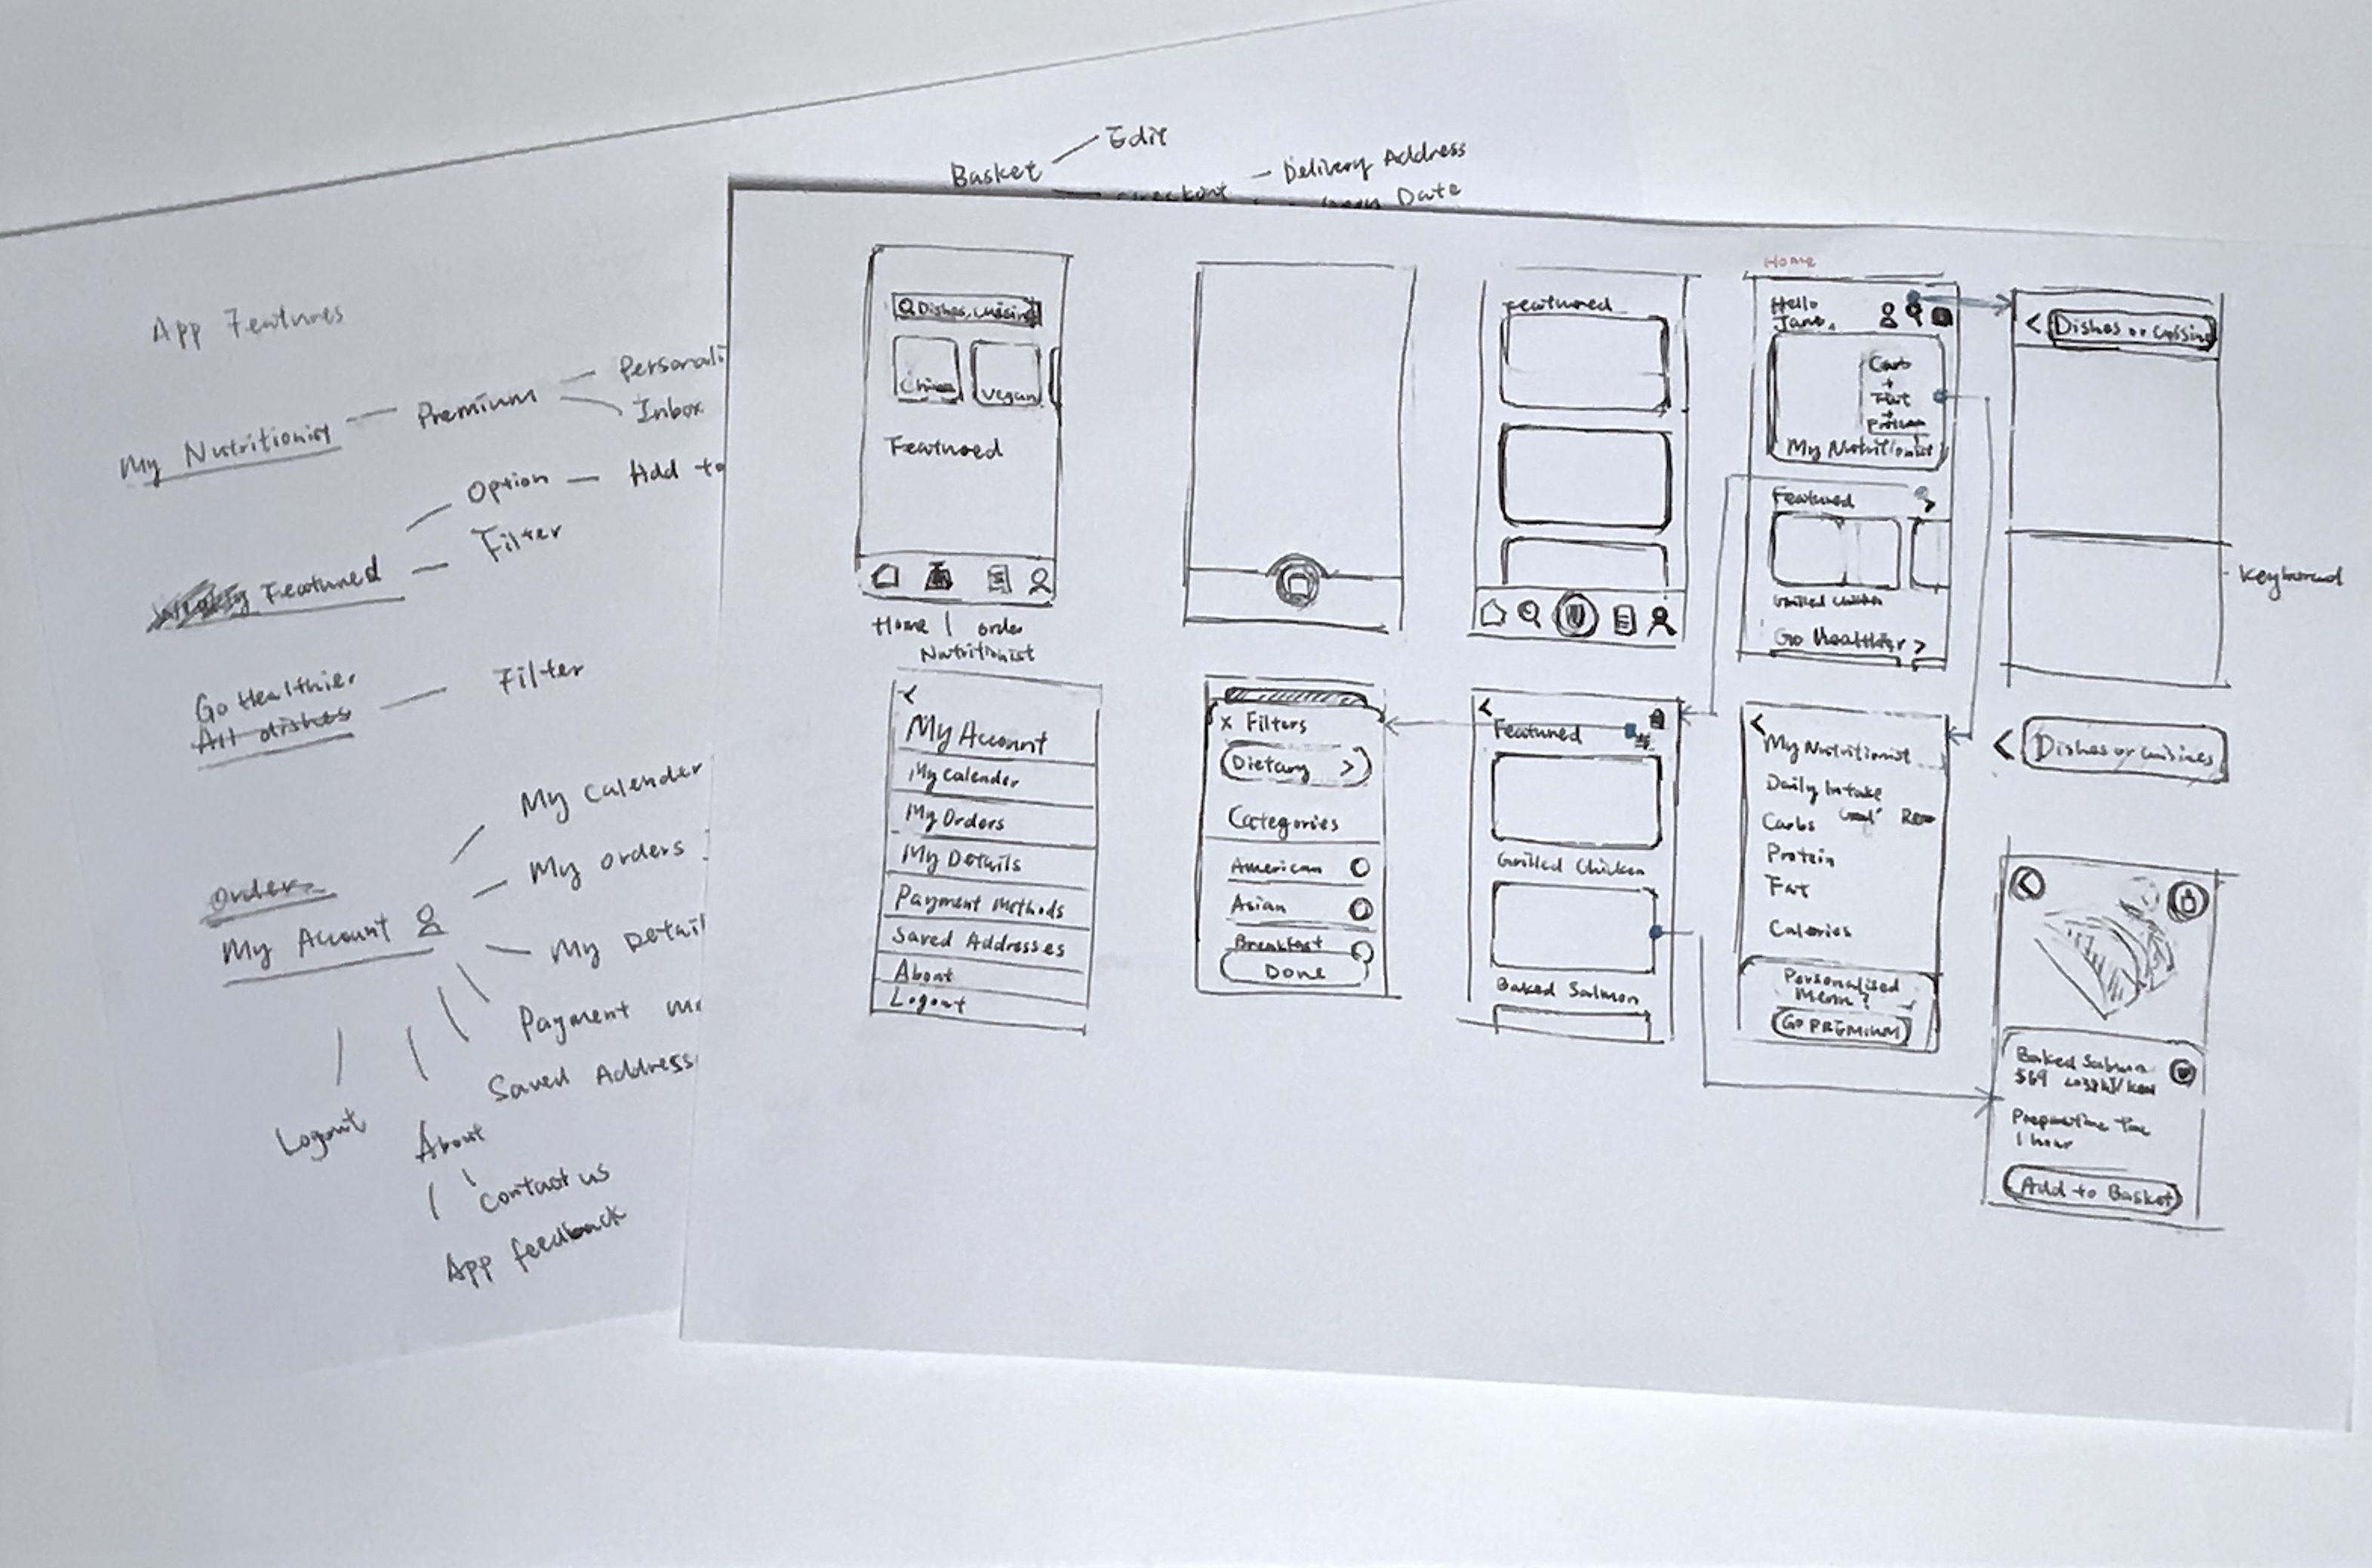 Basket
Edit
Delivery Address
Date
App Features
My Nutritionist
Premium
Inbox
Featured
Option
Add to
Filter
Go Healthier
All dishes
Filter
Orders
My Account
My calender
My orders
Payment
Saved Address
Logout
About
Contact us
App feedback
Dishes, cuisine
Vegan
Featured
Home
order
Nutritionist
Featured
Home
Hello
Jane,
Carb
+
Fat
+
My Nutritionist
Featured
Grilled chicken
Go Healthier >
< Dishes or
Keyboard
<
My Account
My calender
My Orders
My Details
Payment Methods
Saved Addresses
About
Logout
x Filters
Dietary >
Categories
American
Asian
Breakfast
Done
<
Featured
Grilled Chicken
Baked Salmon
<
My Nutritionist
Daily Intake
Carbs
Protein
Fat
Calories
Personalised
Menu?
GO PREMIUM
< Dishes or cuisines
<
Baked Salmon
$69
1 hour
Add to Basket